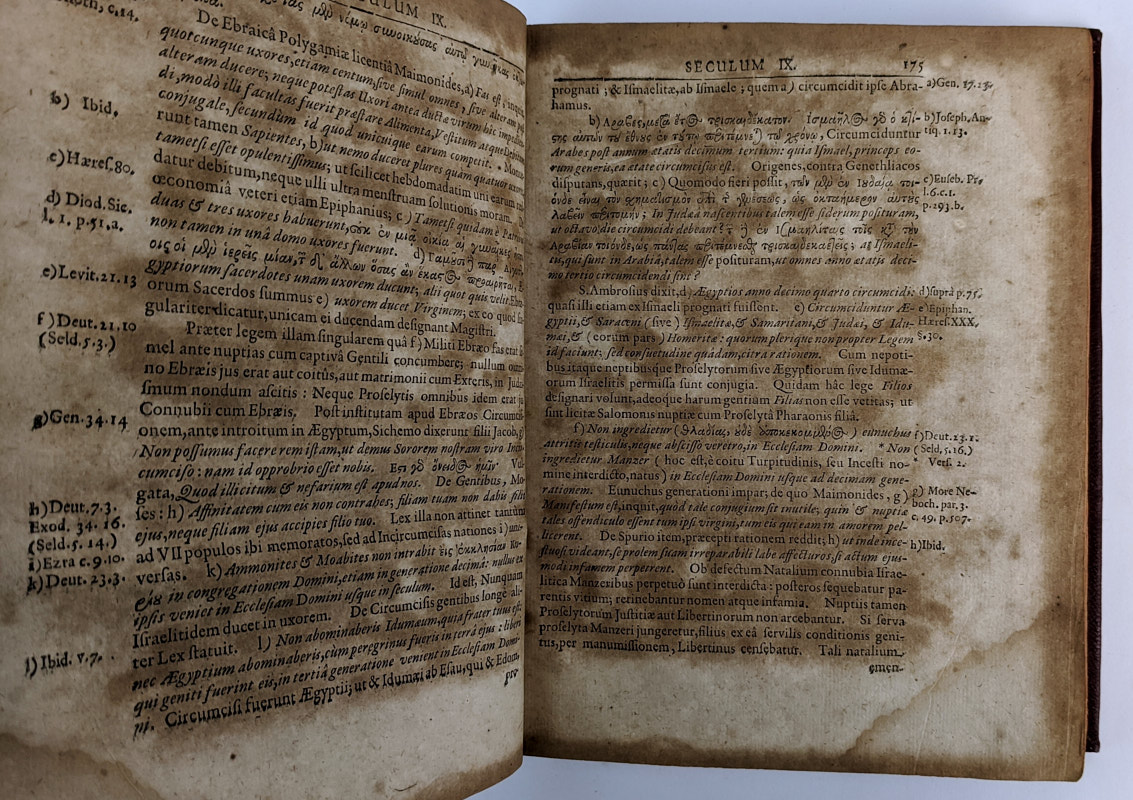 SECULUM IX.
De Ebraicâ Polygamiæ licentiâ Maimonides, a) Fas est, inquit
quotcunque uxores, etiam centum, sive simul omnes, sive alteram post
alteram ducere; neque potestas Uxori antea ductæ virum hic impedien-
di, modò illi facultas fuerit præstare Alimenta, Vestitum atque Debitum
conjugale, secundum id quod unicuique earum competit. * Monue-
runt tamen Sapientes, b) ut nemo duceret plures quam quatuor uxores
tametsi esset opulentissimus; ut scilicet hebdomadatim uni earum red-
datur debitum, neque ulli ultra menstruam solutionis moram.
œconomiâ veteri etiam Epiphanius; c) Tametsi quidam è Patribus
duas & tres uxores habuerunt, οὐκ ἐν μιᾷ οἰκίᾳ αἱ γυναῖκες
non tamen in unâ domo uxores fuerunt. d) Γαμοῦσι παρ' Αἰγυπτί-
οις οἱ μὲν ἱερεῖς μίαν, τῶν δὲ ἄλλων ὅσας ἂν ἕκαστος προαιρῆται, Æ-
gyptiorum sacerdotes unam uxorem ducunt; alii quot quis velit. Ebræ-
orum Sacerdos summus e) uxorem ducet Virginem; ex eo quod sin-
gulariter dicatur, unicam ei ducendam designant Magistri.
Præter legem illam singularem quâ f) Militi Ebræo fas erat se-
mel ante nuptias cum captivâ Gentili concumbere; nullum omni-
no Ebræis jus erat aut coitûs, aut matrimonii cum Exteris, in Judai-
smum nondum ascitis: Neque Proselytis omnibus idem erat jus
Connubii cum Ebræis. Post institutam apud Ebræos Circumcisi-
onem, ante introitum in Ægyptum, Sichemo dixerunt filii Jacob, g)
Non possumus facere rem istam, ut demus Sororem nostram viro Incir-
cumciso: nam id opprobrio esset nobis. Ἔστι γὰρ ὄνειδος ἡμῖν. Vul-
gata, Quod illicitum & nefarium est apud nos. De Gentibus, Mo-
ses: h) Affinitatem cum eis non contrahes; filiam tuam non dabis filio
ejus, neque filiam ejus accipies filio tuo. Lex illa non attinet tantùm
ad VII populos ibi memoratos, sed ad Incircumcisas nationes i) uni-
versas. k) Ammonites & Moabites non intrabit εἰς ἐκκλησίαν Κυ-
ρίου in congregationem Domini, etiam in generatione decimâ: nullus ex
ipsis veniet in Ecclesiam Domini usque in seculum. Id est, Nunquam
Israelitidem ducet in uxorem. De Circumcisis gentibus longè ali-
ter Lex statuit. l) Non abominaberis Idumæum, quia frater tuus est;
nec Ægyptium abominaberis, cum peregrinus fueris in terrâ ejus: liberi
qui geniti fuerint eis, in tertiâ generatione venient in Ecclesiam Domi-
ni. Circumcisi fuerunt Ægyptii; ut & Idumæi ab Esau, qui & Edom,
pro-
b) Ibid.
c) Hæres. 80.
d) Diod. Sic.
l. 1. p. 51. a.
e) Levit. 21. 13
f) Deut. 21. 10
(Seld. 5. 3.)
g) Gen. 34. 14
h) Deut. 7. 3.
Exod. 34. 16.
(Seld. 5. 14.)
i) Ezra c. 9. 10.
k) Deut. 23. 3.
l) Ibid. v. 7.
SECULUM IX. 175
prognati; & Ismaelitæ, ab Ismaele; quem a) circumcidit ipse Abra-
hamus.
b) Ἄραβες, μετὰ ἔτος τρισκαιδέκατον. Ἰσμαῆλος γὰρ ὁ κτί-
στης αὐτῶν τοῦ ἔθνους ἐν τούτῳ περιτέμνεται τῷ χρόνῳ, Circumciduntur
Arabes post annum ætatis decimum tertium: quia Ismael, princeps eo-
rum generis, ea ætate circumcisus est. Origenes, contra Genethliacos
disputans, quærit; c) Quomodo fieri possit, τῶν μὲν ἐν Ἰουδαίᾳ τοι-
όνδε εἶναι τὸν σχηματισμὸν ἐπὶ τῆς γενέσεως, ὡς ὀκταήμερον αὐτοὺς
λαβεῖν περιτομήν; In Judæâ nascentibus talem esse siderum posituram,
ut octavo die circumcidi debeant? τῶν δὲ ἐν Ἰσμαηλίταις τοῖς κατὰ τὴν
Ἀραβίαν τοιόνδε, ὡς πάντας περιτέμνεσθαι τρισκαιδεκαετεῖς; at Ismaeli-
tis, qui sunt in Arabiâ, talem esse posituram, ut omnes anno ætatis deci-
mo tertio circumcidendi sint?
S. Ambrosius dixit, d) Ægyptios anno decimo quarto circumcidi:
quasi illi etiam ex Ismaeli prognati fuissent. e) Circumciduntur Æ-
gyptii, & Saraceni (sive) Ismaelitæ, & Samaritani, & Judæi, & Idu-
mæi, & (eorum pars) Homeritæ: quorum plerique non propter Legem
id faciunt; sed consuetudine quâdam, citra rationem. Cum nepoti-
bus itaque neptibusque Proselytorum sive Ægyptiorum sive Idumæ-
orum Israelitis permissa sunt conjugia. Quidam hâc lege Filios
designari volunt, adeoque harum gentium Filias non esse vetitas; ut
sint licitæ Salomonis nuptiæ cum Proselytâ Pharaonis filiâ.
f) Non ingredietur (θλαδίας, οὐδὲ ἀποκεκομμένος) eunuchus
attritis testiculis, neque abscisso veretro, in Ecclesiam Domini. * Non
ingredietur Manzer (hoc est, è coitu Turpitudinis, seu Incesti no-
mine interdicto, natus) in Ecclesiam Domini usque ad decimam gene-
rationem. Eunuchus generationi impar; de quo Maimonides, g)
Manifestum est, inquit, quod tale conjugium sit inutile; quin & nuptiæ
tales offendiculo essent tum ipsi virgini, tum eis qui eam in amorem pel-
licerent. De Spurio item, præcepti rationem reddit; h) ut inde ince-
stuosi videant, se prolem suam irreparabili labe affecturos, si actum ejus-
modi infamem perpetrent. Ob defectum Natalium connubia Israe-
litica Manzeribus perpetuò sunt interdicta: posteros sequebatur pa-
rentis vitium; retinebantur nomen atque infamia. Nuptiis tamen
Proselytorum Justitiæ aut Libertinorum non arcebantur. Si serva
proselyta Manzeri jungeretur, filius ex eâ servilis conditionis geni-
tus, per manumissionem, Libertinus censebatur. Tali natalium
emen-
a) Gen. 17. 23.
b) Joseph. An-
tiq. 1. 13.
c) Euseb. Pr.
l. 6. c. 1.
p. 293. b.
d) suprà p. 75.
e) Epiphan.
Hæres. XXX.
s. 30.
f) Deut. 23. 1.
(Seld. 5. 16.)
* Vers. 2.
g) More Ne-
boch. par. 3.
c. 49. p. 507.
h) Ibid.